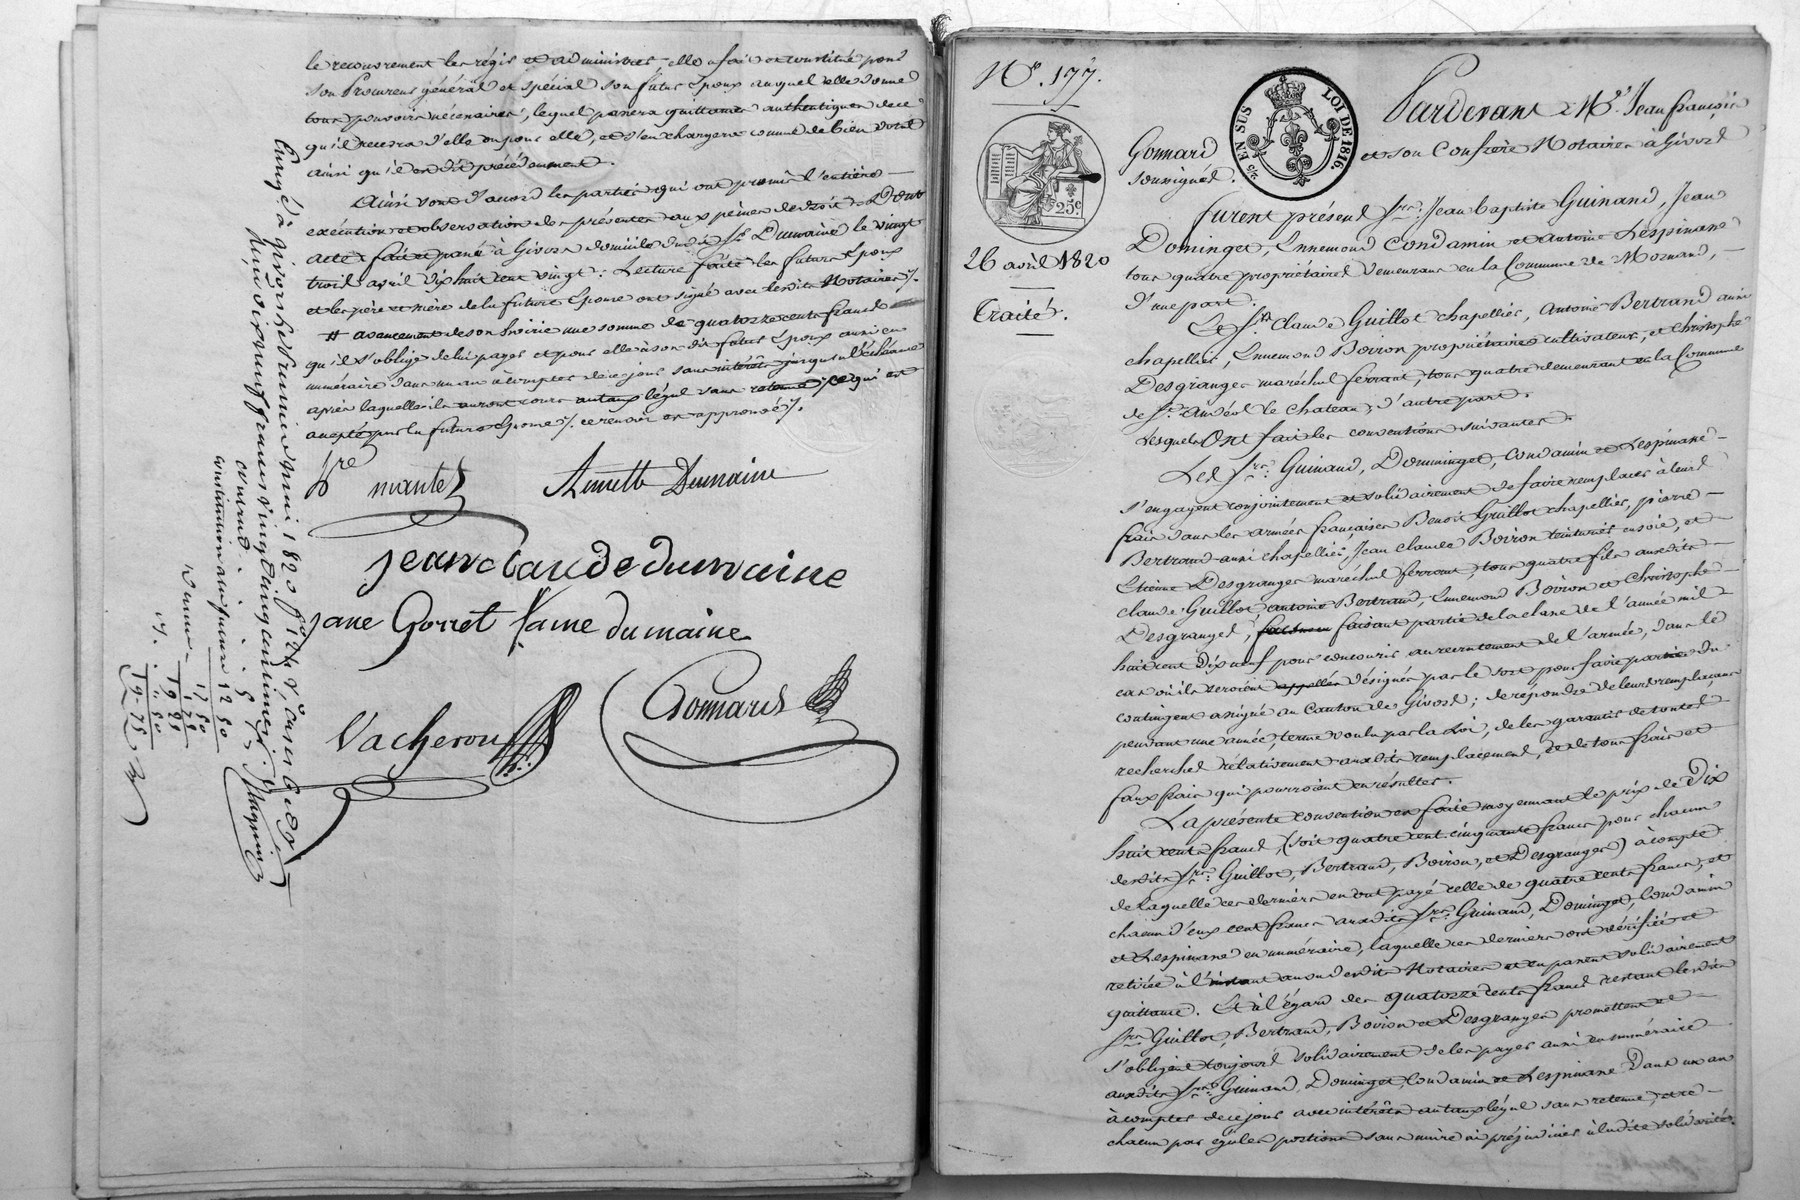 le recouvrement les régir et administrer, elle a fait et constitué pour
son Procureur général et spécial son futur Epoux auquel elle donne
tous pouvoirs nécessaires, lequel passera quittances authentiques de ce
qu'il recevra d'elle ou pour elle, et s'en chargera comme de bien dotal
ainsi qu'il est dit précédemment.
Ainsi sont d'accord les parties qui ont promis l'entière
exécution et observation des présentes aux peines de droit. Dont
acte fait et passé à Givors domicile dudit Sr. Dumaine le vingt
trois avril dix huit cent vingt. Lecture faite les futurs Epoux
et les père et mère de la future Epouse ont signé avec lesdits Notaires ./.
# avancement de son hoirie une somme de quatorze cents francs
qu'il s'oblige de lui payer et pour elle à son dit futur Epoux aussi en
numéraire dans un an à compter de ce jour sans intérêt jusqu'à l'échéance
après laquelle ils auront cours au taux légal sans retenue ./. ce qui est
accepté par la future Epouse ./. ce renvoi est approuvé ./.
Pre mantez Annette Dumaine
jean claude dumaine
jane Gorret fame dumaine
Vacheron Gonnard
Enregé à Givors le premier mai 1820 fo 124 Vo cases 6 et
Reçu dix neuf francs vingt cinq centimes.
constitution au futur 12 50
future 5 "
17 50
1 75
19 25
" 50
19-75
No. 177.
25 EN SUS LOI DE 1816.
25c
26 avril 1820
Traité.
Pardevant Me. Jean françois
Gonnard et son Confrère Notaires à Givors
soussignés.
furent présens Srs. Jean baptiste Guinand, Jean
Dominget, Ennemond Condamin et Antoine Lespinasse
tous quatre propriétaires demeurans en la Commune de Mornand,
d'une part.
Les Srs. Claude Guillot chapellier, Antoine Bertrand aussi
chapellier, Ennemond Boiron propriétaires cultivateurs, et Christophe
Desgranges maréchal ferrant, tous quatre demeurant en la Commune
de St. Andéol le Chateau, d'autre part.
Lesquels Ont fait les conventions suivantes.
Les Srs. Guinand, Dominget, Condamin et Lespinasse
s'engagent conjointement et solidairement de faire remplacer à leurs
frais dans les armées françaises Benoit Guillot chapellier, pierre
Bertrand aussi chapellier, Jean claude Boiron teinturier en soie, et
Etienne Desgranges maréchal ferrant, tous quatre fils auxdits
Claude Guillot antoine Bertrand, Ennemond Boiron et Christophe
Desgranges, faisant partie de la classe de l'année mil
huit cent dix neuf pour concourir au recrutement de l'armée, dans le
cas où ils seroient appellés désignés par le sort pour faire partie du
contingent assigné au Canton de Givors; de répondre de leurs remplaçans
pendant une année, terme voulu par la Loi, de les garantir de toutes
recherches relativement auxdits remplacement, et de tous frais et
faux frais qui pourroient en résulter.
La présente convention est faite moyennant le prix de Dix
huit cents francs, (soit quatre cent cinquante francs pour chacun
desdits Srs. Guillot, Bertrand, Boiron, et Desgranges) à compte
de laquelle ces derniers en ont payé celle de quatre cents francs, et
chacun d'eux cent francs auxdits Srs. Guinand, Dominget, Condamin
et Lespinasse en numéraire, laquelle ces derniers ont vérifiée et
retirée à l'instant au vu desdits Notaires et en passent solidairement
quittance. Et à l'égard des quatorze cents francs restant lesdits
Srs. Guillot, Bertrand, Boiron et Desgranges promettent et
s'obligent toujours solidairement de les payer aussi en numéraire
auxdits Srs. Guinand, Dominget, Condamin et Lespinasse dans un an
à compter de ce jour avec intérêts au taux légal sans retenue, et ce
chacun par égales portions sans nuire ni préjudicier à ladite solidarité.